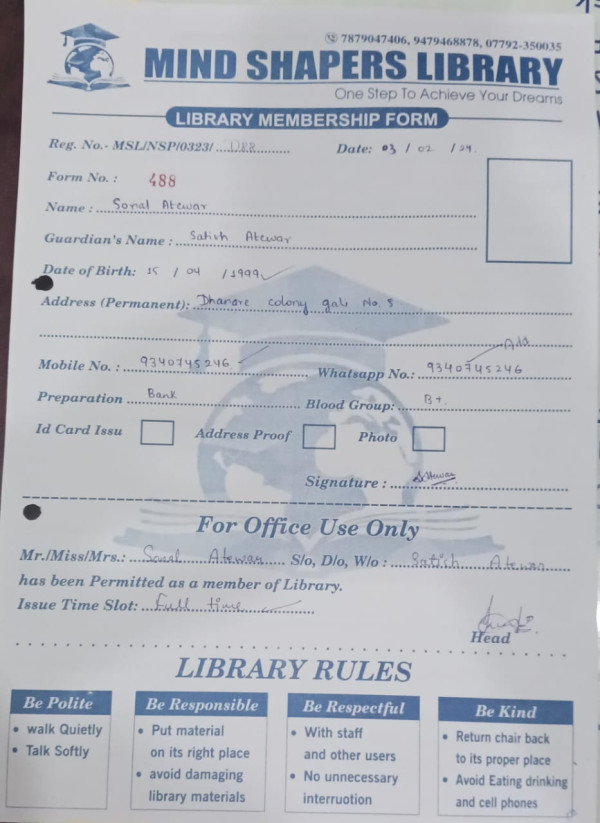 7879047406, 9479468878, 07792-350035
MIND SHAPERS LIBRARY
One Step To Achieve Your Dreams
LIBRARY MEMBERSHIP FORM
Reg. No.- MSL/NSP/0323/.... D88 ........... Date: 03 / 02 / 24.
Form No. : 488
Name : Sonal Atewar
Guardian's Name : Satish Atewar
Date of Birth: 15 / 04 / 1999
Address (Permanent): Dhanare colony gali No. 5
Mobile No. : 9340745246 Whatsapp No.: 9340745246
Preparation Bank Blood Group: B+.
Id Card Issu Address Proof Photo
Signature : Atewar
For Office Use Only
Mr./Miss/Mrs.: Sonal Atewar S/o, D/o, W/o : Satish Atewar
has been Permitted as a member of Library.
Issue Time Slot: Full time
Head
LIBRARY RULES
Be Polite
• walk Quietly
• Talk Softly
Be Responsible
• Put material
on its right place
• avoid damaging
library materials
Be Respectful
• With staff
and other users
• No unnecessary
interruotion
Be Kind
• Return chair back
to its proper place
• Avoid Eating drinking
and cell phones